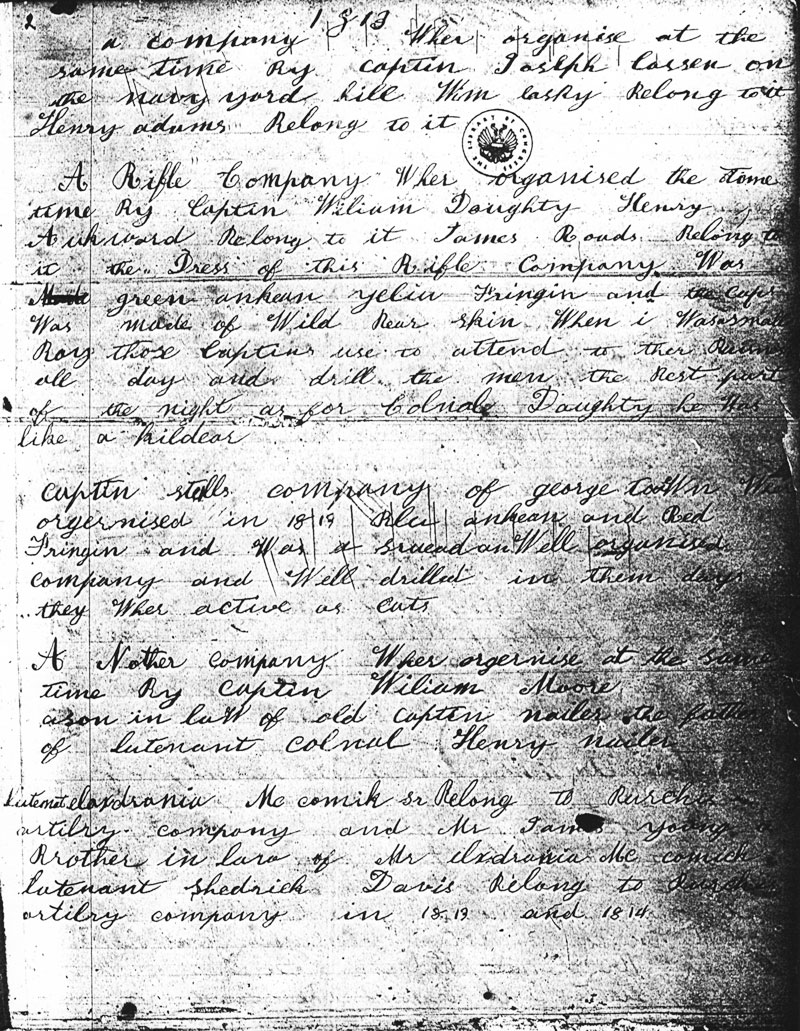 2
1813
a company Wher organise at the
same time By Captin Joseph Cassen on
the navy yard hill Wim lasky Belong to it
Henry adams Belong to it
THE LIBRARY OF CONGRESS
A Rifle Company Wher organised the same
time By Captin Wiliam Doughty Henry
Aukward Belong to it James Roads Belong to
it the Dress of this Rifle Company Was
green ankean yeliw Fringin and the caps
Was made of Wild Bear skin When i Was a smal
Boy those Captins use to attend to ther
all day and drill the men the Best part
of the night as for Colnale Doughty he Was
like a kildear
Captin stulls company of george toWn
orgernised in 1813 Blu ankean and Red
Fringin and Was a an Well organised
company and Well drilled in them days
they Wher active as Cats
A Nother company Wher orgernise at the same
time By Captin Wiliam Moore
a son in laW of old Captin nailer the father
of lutenant Colnul Henry nailer
lutenat elaxdrania Mc comik sr Belong to Burches
artilry company and Mr James young a
Brother in law of Mr elxdrania Mc comick
lutenant shedrick Davis Belong to
artilry company in 1813 and 1814